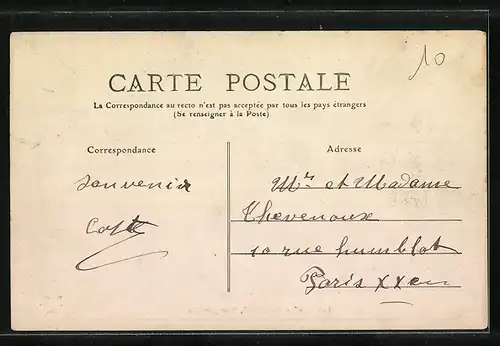 10
CARTE POSTALE
La Correspondance au recto n'est pas acceptée par tous les pays étrangers
(Se renseigner à la Poste)
Correspondance
Adresse
Souvenir
Mr et Madame
Thevenoux
10 rue humblot
Paris XXem